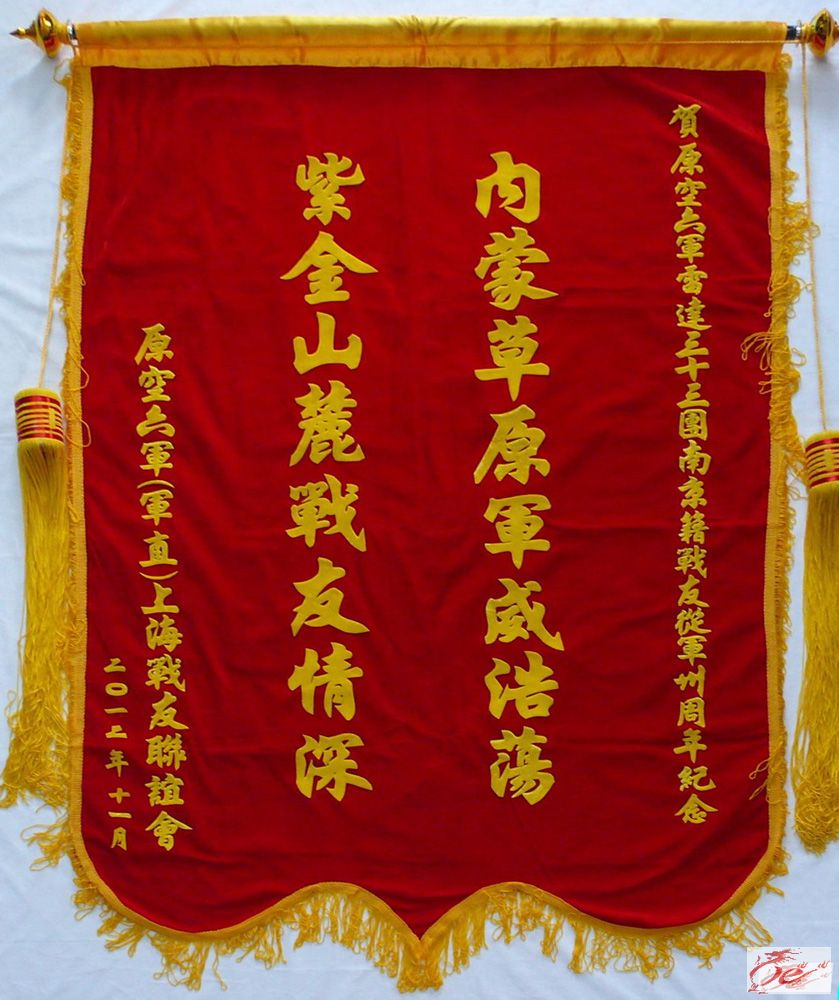 賀原空六軍雷達三十三團南京籍戰友從軍卌周年紀念
內蒙草原軍威浩蕩
紫金山麓戰友情深
原空六軍(軍直)上海戰友聯誼會
二〇一二年十一月